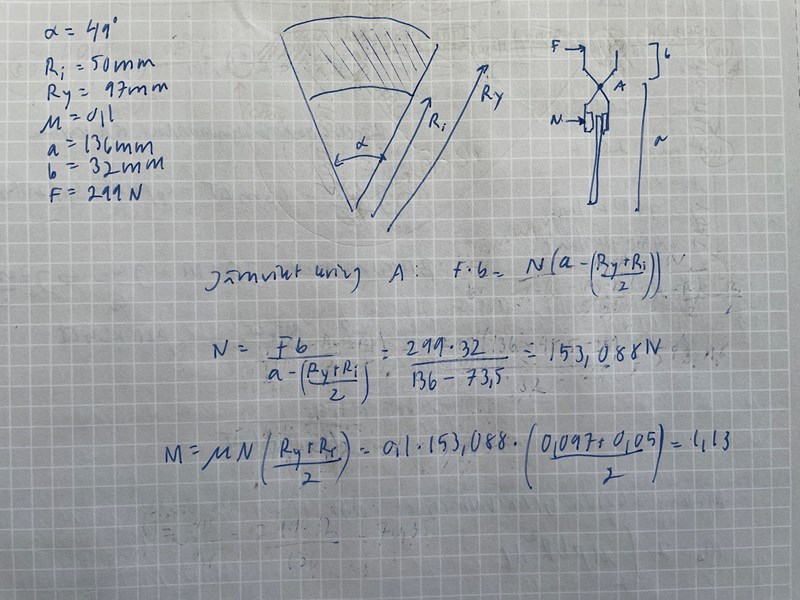 α = 49°
Ri = 50mm
Ry = 97mm
μ = 0,1
a = 136mm
b = 32mm
F = 299 N
α
Ri
Ry
F
b
A
N
a
Jämvikt kring A: F·b = N(a - (Ry+Ri)/2)
N = Fb/(a - (Ry+Ri)/2) = 299·32/(136 - 73,5) = 153,088N
M = μN((Ry+Ri)/2) = 0,1·153,088·((0,097+0,05)/2) = 1,13